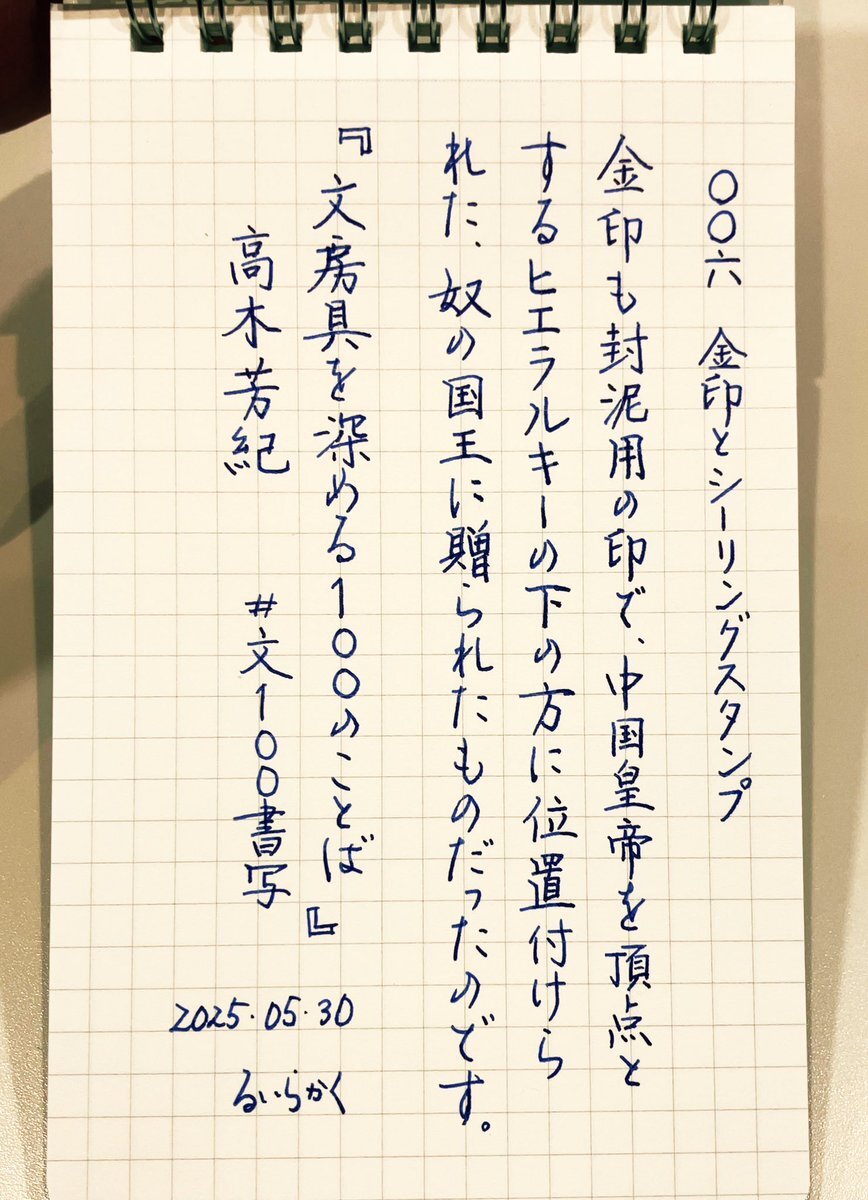 〇〇六 金印とシーリングスタンプ
金印も封泥用の印で、中国皇帝を頂点と
するヒエラルキーの下の方に位置付けら
れた、奴の国王に贈られたものだったのです。
『文房具を深める100のことば』
高木芳紀 #文100書写
2025.05.30
るいらかく